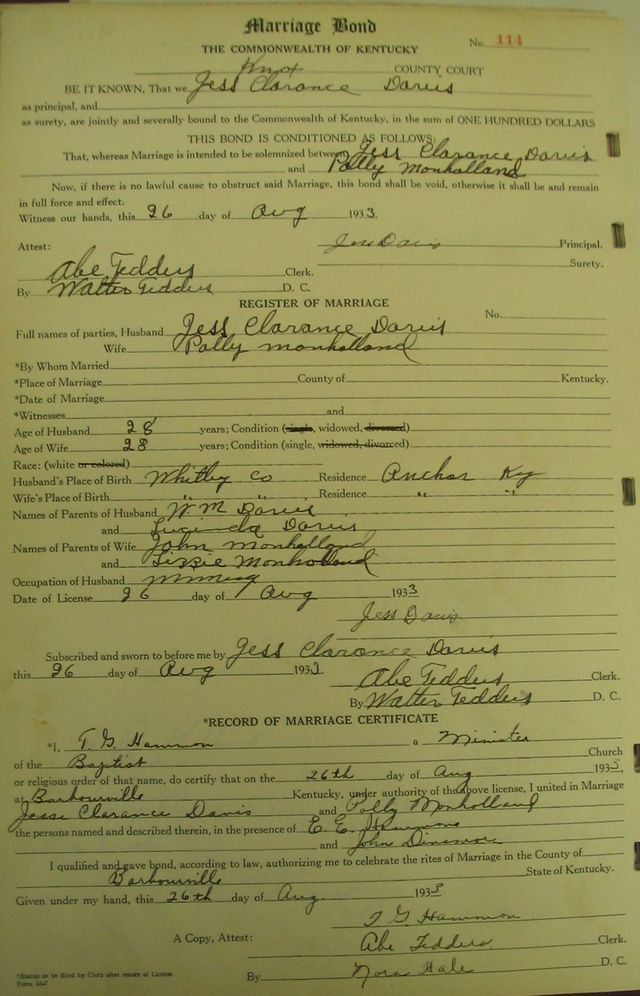 Marriage Bond
THE COMMONWEALTH OF KENTUCKY No. 114
Knox COUNTY COURT
BE IT KNOWN, That we Jess Clarance Davis
as principal, and
as surety, are jointly and severally bound to the Commonwealth of Kentucky, in the sum of ONE HUNDRED DOLLARS
THIS BOND IS CONDITIONED AS FOLLOWS:
That, whereas Marriage is intended to be solemnized between Jess Clarance Davis
and Polly Monholland
Now, if there is no lawful cause to obstruct said Marriage, this bond shall be void, otherwise it shall be and remain
in full force and effect.
Witness our hands, this 26 day of Aug 1933.
Attest: Jess Davis Principal.
Surety.
Abe Tedders Clerk.
By Walter Tedders D. C.
REGISTER OF MARRIAGE
No.
Full names of parties, Husband Jess Clarance Davis
Wife Polly Monholland
*By Whom Married
*Place of Marriage County of Kentucky.
*Date of Marriage
*Witnesses and
Age of Husband 28 years; Condition (single, widowed, divorced)
Age of Wife 28 years; Condition (single, widowed, divorced)
Race: (white or colored)
Husband's Place of Birth Whitley Co Residence Anchor Ky
Wife's Place of Birth " " " Residence " "
Names of Parents of Husband W M Davis
and Lucinda Davis
Names of Parents of Wife John Monholland
and Lizzie Monholland
Occupation of Husband Mining
Date of License 26 day of Aug 1933
Jess Davis
Subscribed and sworn to before me by Jess Clarance Davis
this 26 day of Aug 1933. Abe Tedders Clerk.
By Walter Tedders D. C.
*RECORD OF MARRIAGE CERTIFICATE
*I, T. G. Hammon a Minister
of the Baptist Church
or religious order of that name, do certify that on the 26th day of Aug 1933,
at Barbourville Kentucky, under authority of the above license, I united in Marriage
Jesse Clarance Davis and Polly Monholland
the persons named and described therein, in the presence of E. E. Hammons
and John
I qualified and gave bond, according to law, authorizing me to celebrate the rites of Marriage in the County of
Barbourville State of Kentucky.
Given under my hand, this 26th day of Aug. 1933
T G Hammon
A Copy, Attest: Abe Tedders Clerk.
By Nora Hale D. C.
*Blanks to be filled by Clerk after return of License